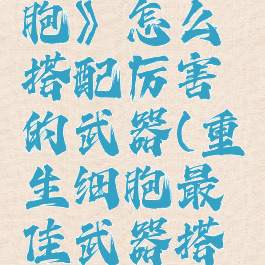 胞》怎么
搭配厉害
的武器(重
生细胞最
佳武器搭